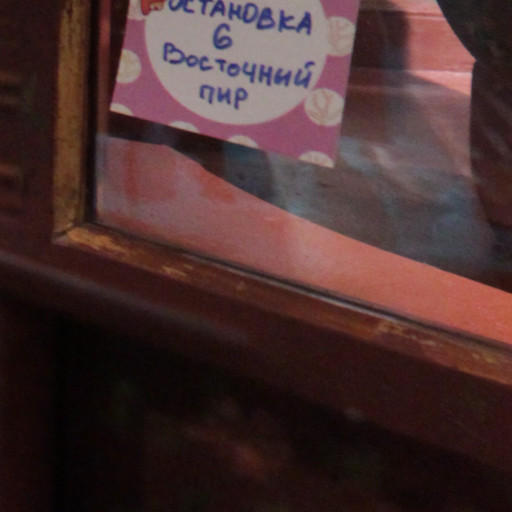 ОСТАНОВКА
6
Восточный
пир